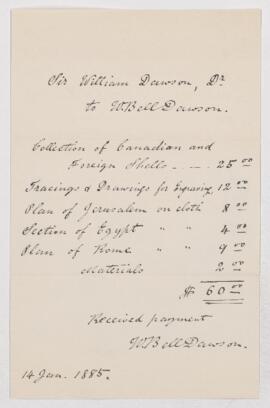 Sir William Dawson, Dr
to W. Bell Dawson.
Collection of Canadian and
Foreign Shells - - . 25 00
Tracings & Drawings for Engraving, 12 00
Plan of Jerusalem on cloth 8 00
Section of Egypt " " 4 00
Plan of Rome " " 9 00
Materials 2 00
$ 60 00
Received payment
W. Bell Dawson.
14 Jan. 1885.